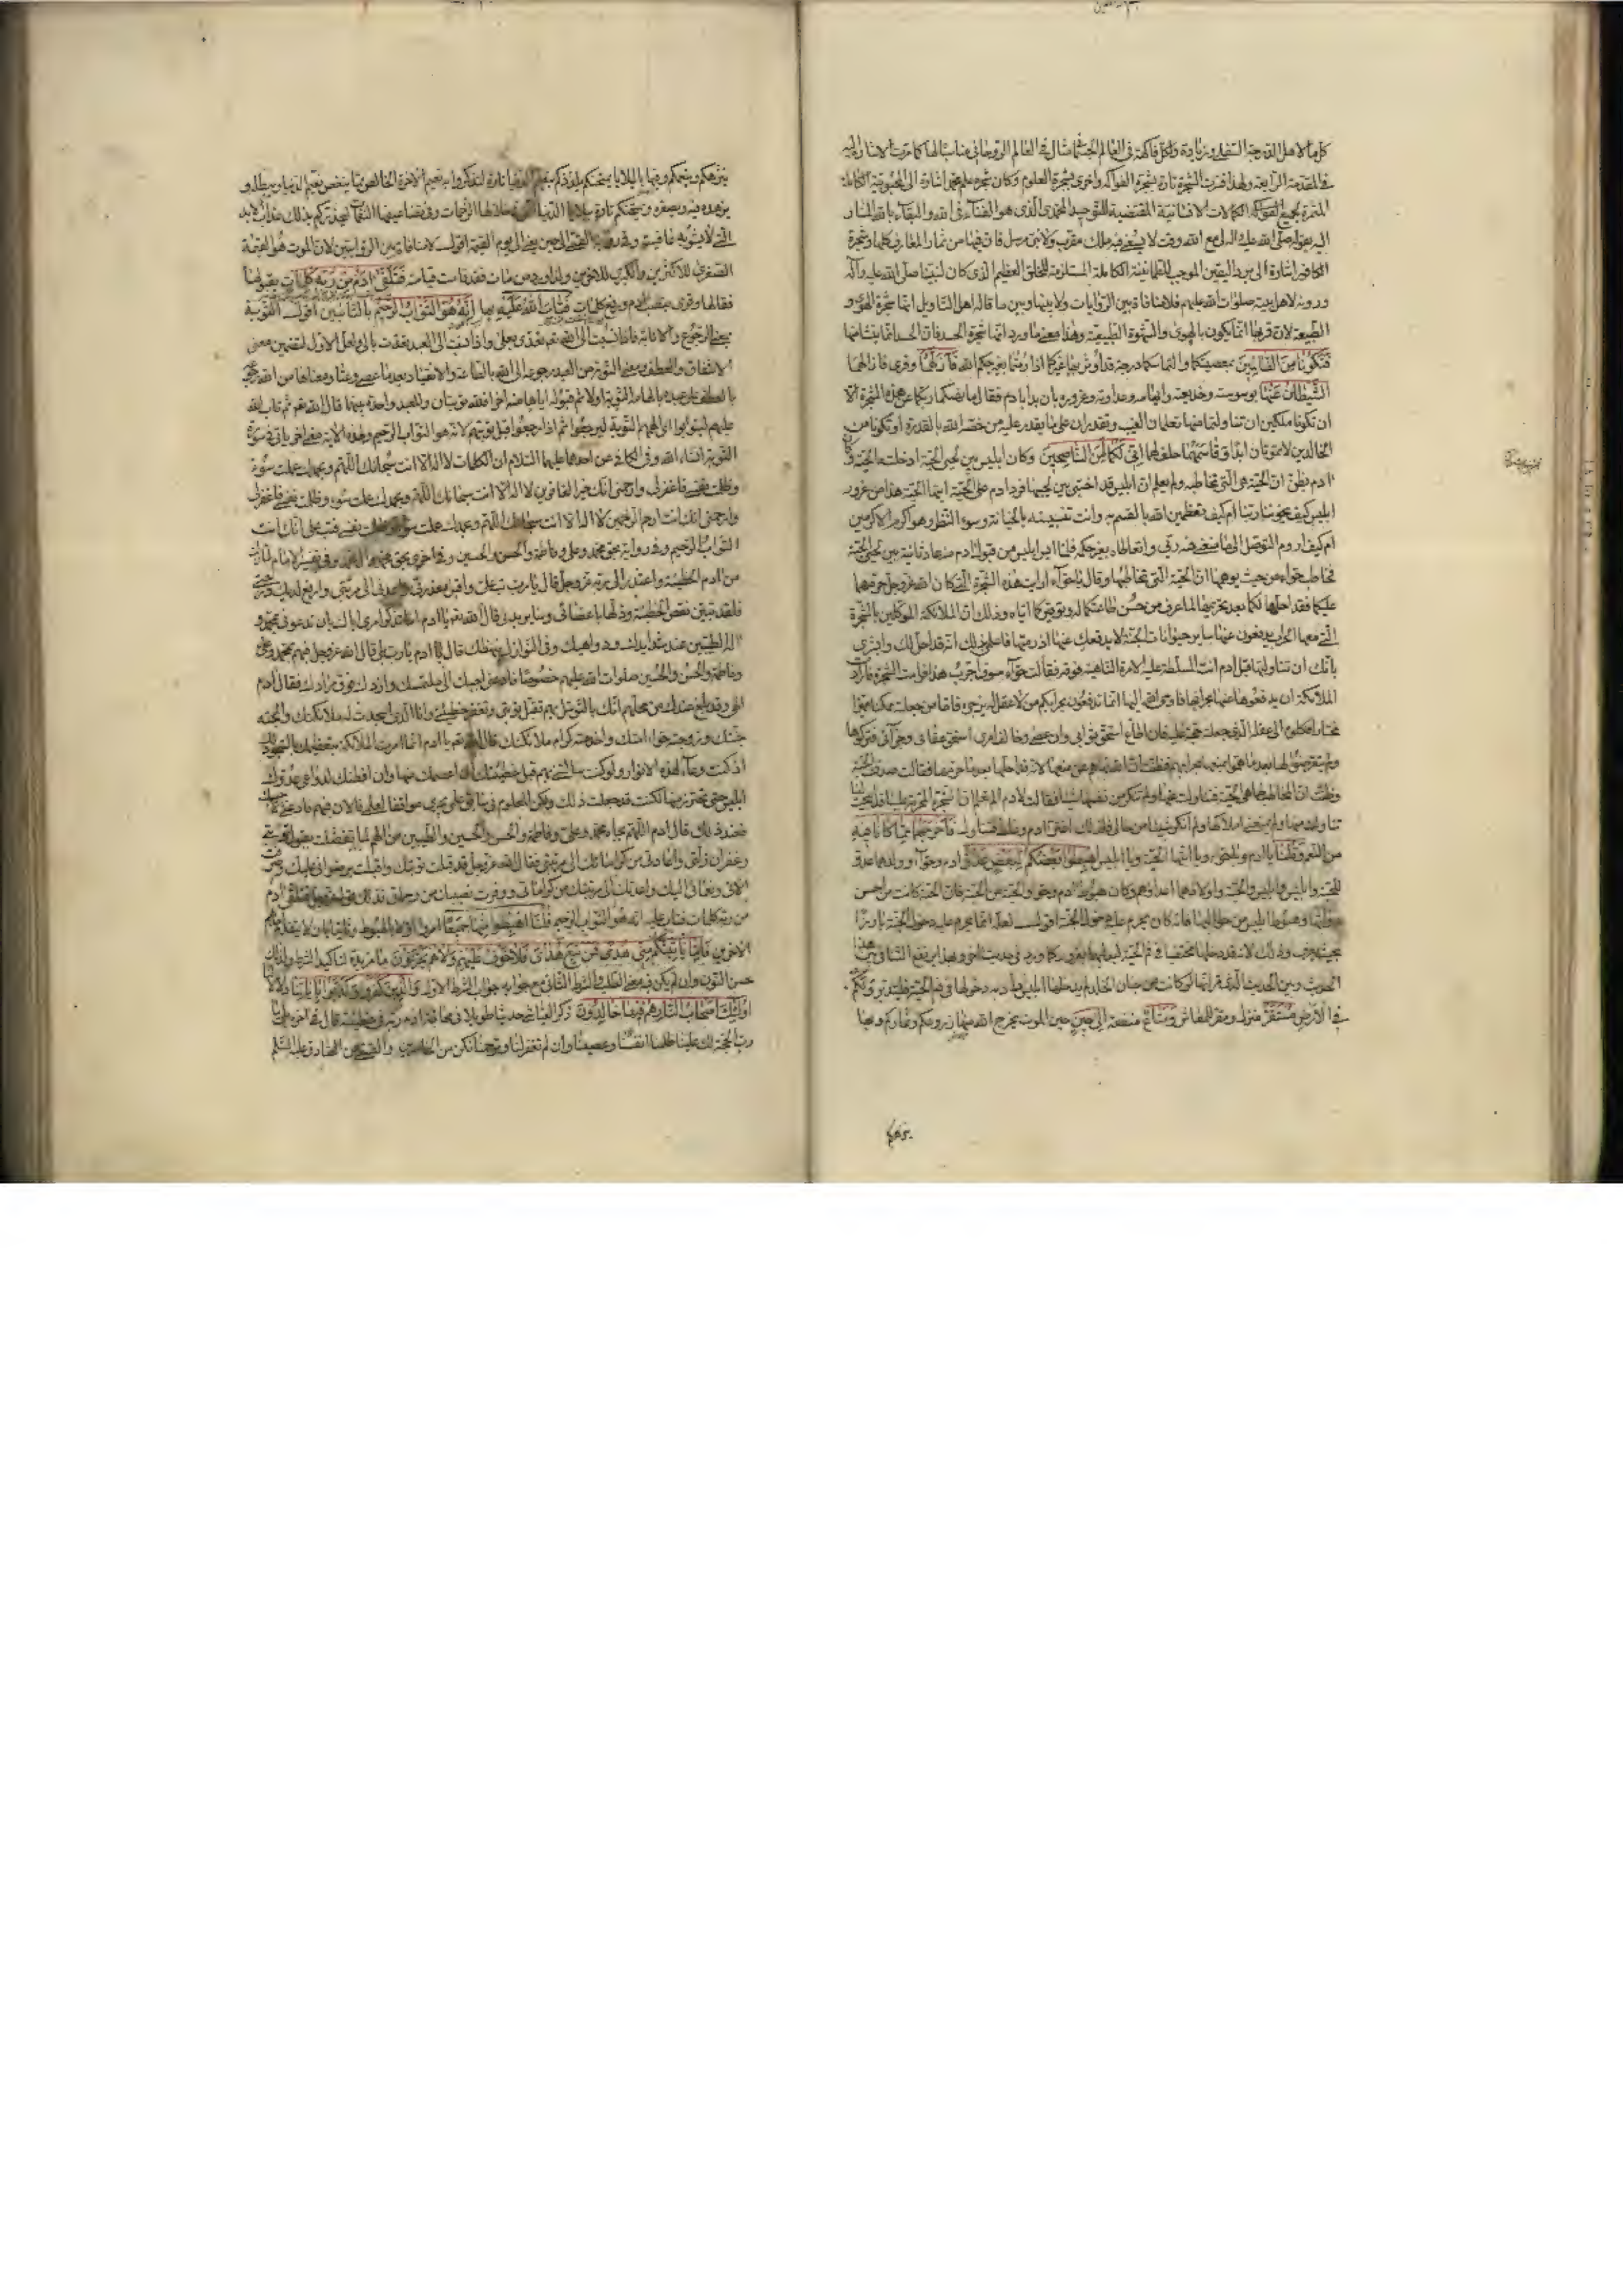 كل ما لأهل الدرجة السفلى وزيادة ولكل فاكهة في العالم الجسماني مثال في العالم الروحاني مناسب لها كما مرت الاشارة اليه
في المقدمة الرابعة ولهذا فسرت الشجرة تارة بشجرة الفواكه واخرى بشجرة العلوم وكان شجرة علم محمد اشارة الى المحبوبية الكاملة
المثمرة بجميع الكمالات الانسانية المقتضية للتوحيد المحمدي الذي هو الفناء في الله والبقاء بالله المشار
اليه بقوله صلى الله عليه واله لي مع الله وقت لا يسعني فيه ملك مقرب ولا نبي مرسل فان فيها من ثمار المعارف كلها وشجرة
الكافور اشارة الى برد اليقين الموجب للطمأنينة الكاملة المستلزمة للخلق العظيم الذي كان لنبينا صلى الله عليه وآله
ودونه لاهل بيته صلوات الله عليهم فلا منافاة بين الروايات ولا بينها وبين ما قاله اهل التأويل انها شجرة الهوى و
الطبيعة لان قربها انما يكون بالهوى والشهوة الطبيعية وهذا معنى ما ورد انها شجرة الحسد فان الحسد انما ينشأ منها
فتكونا من الظالمين بمعصيتكما والتماسكما درجة قد اوثر بها غيركما اذا رمتما بغير حكم الله فازلهما وقرئ فازالهما
الشيطان عنها بوسوسته وخديعته وايهامه وعداوته وغروره بان بدأ بادم فقال ما نهيكما ربكما عن هذه الشجرة الا
ان تكونا ملكين ان تناولتما منها تعلمان الغيب وتقدران على ما يقدر عليه من خصه الله بالقدرة او تكونا من
الخالدين لا تموتان ابدا وقاسمهما حلف لهما اني لكما لمن الناصحين وكان ابليس بين لحيي الحية ادخلته الجنة وكان
ادم يظن ان الحية هي التي تخاطبه ولم يعلم ان ابليس قد اختبى بين لحييها فرد ادم على الحية ايتها الحية هذا من غرور
ابليس كيف يخوننا ربنا ام كيف تعظمين الله بالقسم به وانت تنسبينه الى الخيانة وسوء النظر وهو اكرم الاكرمين
ام كيف اروم التوصل الى ما منعني منه ربي واتعاطاه بغير حكمه فلما ايس ابليس من قبول ادم منه عاد ثانية بين لحيي الحية
فخاطب حواء من حيث يوهمها ان الحية هي التي تخاطبها وقال يا حواء ارايت هذه الشجرة التي كان الله عز وجل حرمها
عليكما فقد احلها لكما بعد تحريمها لما عرف من حسن طاعتكما له وتوقيركما اياه وذلك ان الملائكة الموكلين بالشجرة
التي معها الحراب يدفعون عنها ساير حيوانات الجنة لا يدفعك عنها ان رمتها فاعلمي بذلك انه قد احل لك وابشري
بانك ان تناولتها قبل ادم كنت انت المسلطة عليه الامرة الناهية فوقه فقالت حواء سوف اجرب هذا فرامت الشجرة فارادت
الملائكة ان يدفعوها عنها بحرابها فاوحى الله اليها انما تدفعون بحرابكم من لا عقل له يزجره فاما من جعلته ممكنا مميزا
مختارا فكلوه الى عقله الذي جعلته حجة عليه فان اطاع استحق ثوابي وان عصى وخالف امري استحق عقابي وجزائي فتركوها
ولم يتعرضوا لها بعد ما هموا بمنعها بحرابهم فظنت ان الله نهاهم عن منعها لانه قد احلها بعد ما حرمها فقالت صدقت الحية
وظنت ان المخاطب لها هي الحية فتناولت منها ولم تنكر من نفسها شيئا فقالت لادم الم تعلم ان الشجرة المحرمة علينا قد ابيحت لنا
تناولت منها ولم يمنعني املاكها ولم انكر شيئا من حالي فلذلك اغتر ادم وغلط فتناول فاخرجهما مما كانا فيه
من النعيم وقلنا يا ادم ويا حواء ويا ايتها الحية ويا ابليس اهبطوا بعضكم لبعض عدو ادم وحواء وولدهما عدو
للحية وابليس وابليس والحية واولادهما اعداؤهم وكان هبوط ادم وحواء والحية من الجنة فان الحية كانت من احسن
دوابها وهبوط ابليس من حواليها فانه كان يحرم عليه دخول الجنة اقول لعله انما يحرم عليه دخول الجنة بارزا
بحيث يعرف وذلك لانه قد دخلها مختفيا في فم الحية ليدليهما بغرور كما ورد في حديث اخر وبهذا يرتفع التنافي بين هذا
الحديث وبين الحديث الذي مر انها لو كانت من جنان الخلد لم يدخلها ابليس اراد به دخولها في فم الحية فليتدبر ولكم
في الارض مستقر منزل ومقر للمعاش ومتاع منفعة الى حين حين الموت يخرج الله منها زروعكم وثماركم وبها
ينزهكم
ينزهكم وينعمكم وفيها بالبلايا يمتحنكم يلذذكم بنعيم الدنيا تارة لتذكروا به نعيم الاخرة الخالص مما ينغص نعيم الدنيا ويبطله و
يزهد فيه ويصغره ويمتحنكم تارة ببلايا الدنيا التي خلالها الرحمات وفي تضاعيفها النقمات ليحذركم بذلك عذاب الابد
الذي لا يشوبه عافية والقمي الى حين يعني الى يوم القيمة اقول لا منافاة بين الروايتين لان الموت هو القيمة
الصغرى للاكثرين والكبرى للاخرين ولذا ورد من مات فقد قامت قيامته فتلقى ادم من ربه كلمات يقولها
فقالها وقرئ بنصب ادم ورفع كلمات فتاب الله عليه بها انه هو التواب الرحيم بالتائبين اقول التوبة
بمعنى الرجوع والانابة فاذا نسبت الى الله تعالى تعدت بعلى واذا نسبت الى العبد تعدت بالى ولعل الاول لتضمين معنى
الاشفاق والعطف ومعنى التوبة من العبد رجوعه الى الله بالطاعة والانقياد بعد ما عصى وعتا ومعناها من الله رجوعه
بالعطف على عبده بالهامه التوبة اولا ثم قبوله اياها منه اخرا فلله توبتان وللعبد واحدة بينهما قال الله تعالى ثم تاب الله
عليهم ليتوبوا اي الهمهم التوبة ليرجعوا ثم اذا رجعوا قبل توبتهم لانه هو التواب الرحيم ولهذه الاية معنى اخر ياتي في سورة
التوبة انشاء الله وفي الكافي عن احدهما عليهما السلام ان الكلمات لا اله الا انت سبحانك اللهم وبحمدك عملت سوء
وظلمت نفسي فاغفر لي وارحمني انك خير الغافرين لا اله الا انت سبحانك اللهم وبحمدك عملت سوء وظلمت نفسي فاغفر لي
وارحمني انك انت ارحم الراحمين لا اله الا انت سبحانك اللهم وبحمدك عملت سوء وظلمت نفسي فتب علي انك انت
التواب الرحيم وفي رواية بحق محمد وعلي وفاطمة والحسن والحسين وفي اخرى بحق محمد وال محمد وفي تفسير الامام لما زلت
من ادم الخطيئة واعتذر الى ربه عز وجل قال يا رب تب علي واقبل معذرتي واعدني الى مرتبتي وارفع لديك درجتي
فلقد تبين نقص الخطيئة وذلها باعضائي وسائر بدني قال الله تعالى يا ادم اما تذكر امري اياك بان تدعوني بمحمد و
اله الطيبين عند شدايدك ودواهيك وفي النوازل تبهظك قال ادم يا رب بلى قال الله عز وجل فبهم بمحمد وعلي
وفاطمة والحسن والحسين صلوات الله عليهم خصوصا فادعني اجبك الى ملتمسك وازدك فوق مرادك فقال ادم
الهي وقد بلغ عندك من محلهم انك بالتوسل بهم تقبل توبتي وتغفر خطيئتي وانا الذي اسجدت له ملائكتك وابحته
جنتك وزوجته حواء امتك واخدمته كرام ملائكتك قال الله تعالى يا ادم انما امرت الملائكة بتعظيمك بالسجود لك
اذ كنت وعاء لهذه الانوار ولو كنت سألتني بهم قبل خطيئتك ان اعصمك منها وان افطنك لدواعي عدوك
ابليس حتى تحترز منها لكنت قد جعلت ذلك ولكن المعلوم في سابق علمي يجري موافقا لعلمي فالان فبهم فادعني لاجيبك
فعند ذلك قال ادم اللهم بجاه محمد وعلي وفاطمة والحسن والحسين والطيبين من الهم لما تفضلت بقبول توبتي
وغفران زلتي واعادتي من كراماتك الى مرتبتي فقال الله عز وجل قد قبلت توبتك واقبلت برضواني عليك وصرفت
الائي ونعمائي اليك واعدتك الى مرتبتك من كراماتي ووفرت نصيبك من رحماتي فذلك قوله عز وجل فتلقى ادم
من ربه كلمات فتاب عليه انه هو التواب الرحيم قلنا اهبطوا منها جميعا امروا اولا بالهبوط وثانيا بان لا يتقدم احدهم
الاخرين فاما ياتينكم مني هدى فمن تبع هداي فلا خوف عليهم ولا هم يحزنون ما مزيدة لتأكيد الشرط ولذلك
حسن النون وان لم يكن فيه معنى الطلب والشرط الثاني مع جوابه جواب الشرط الاول والذين كفروا وكذبوا باياتنا
اولئك اصحاب النار هم فيها خالدون ذكر العياشي حديثا طويلا في محاجة ادم ربه في خطيئته قال في اخره بلى يا
رب الحجة لك علينا ظلمنا انفسنا وعصينا وان لم تغفر لنا وترحمنا نكن من الخاسرين والقمي عن الصادق عليه السلام